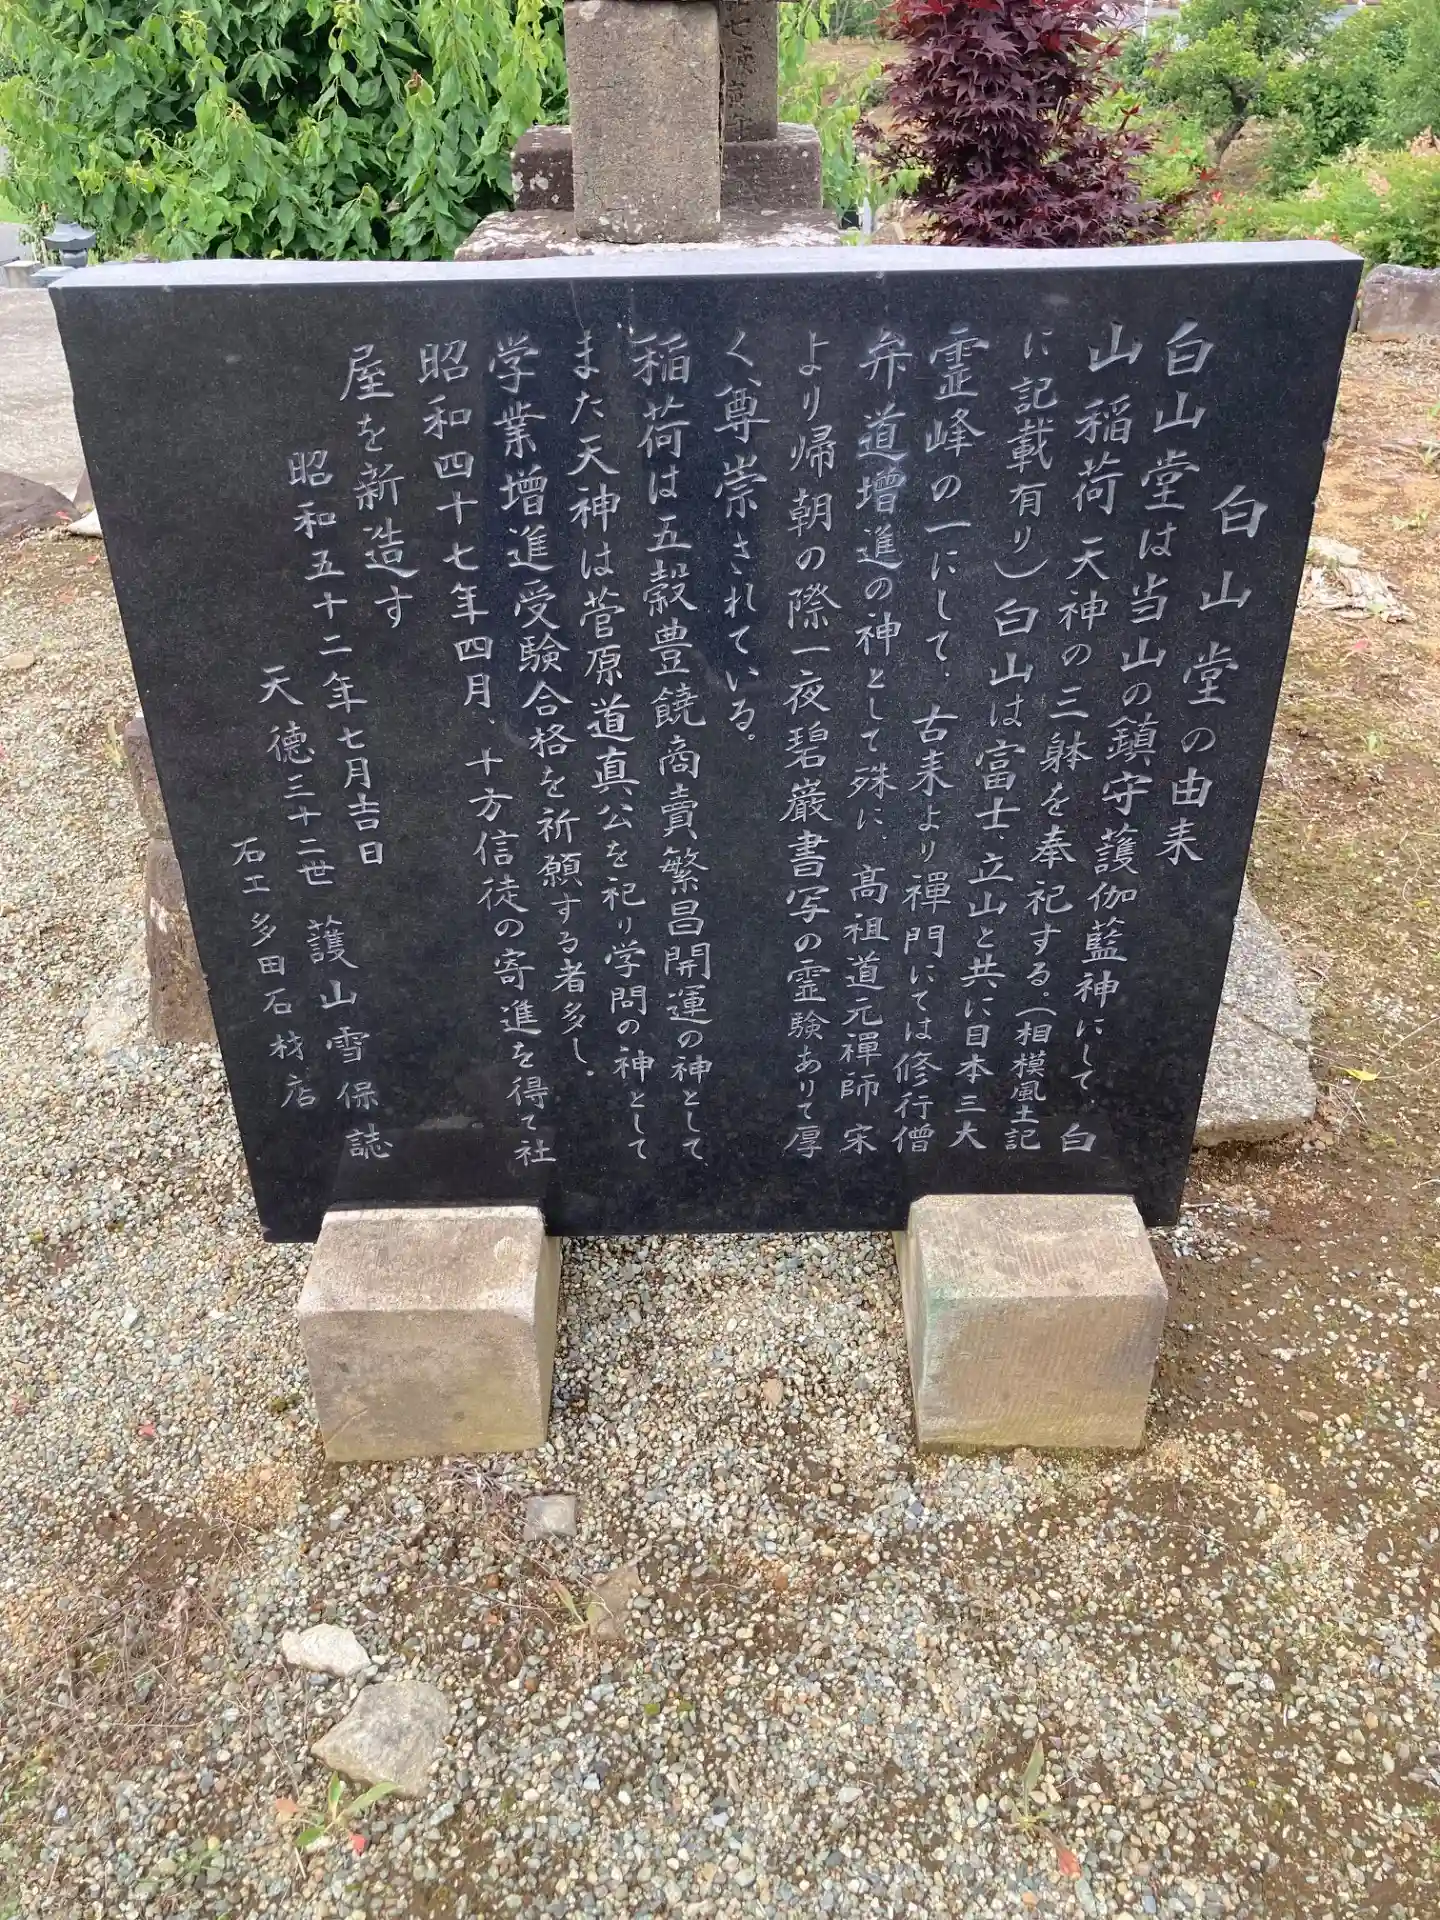 白山堂の由来
白山堂は当山の鎮守護伽藍神にして、白
山稲荷天神の三躰を奉祀する。(相模風土記
に記載有り)白山は富士、立山と共に日本三大
霊峰の一にして、古来より禪門にては修行僧
弁道増進の神として殊に、高祖道元禪師宋
より帰朝の際一夜碧巌書写の霊験ありて厚
く、尊崇されている。
稲荷は五穀豊饒商賣繁昌開運の神として、
また天神は菅原道真公を祀り学問の神として
学業増進受験合格を祈願する者多し。
昭和四十七年四月、十方信徒の寄進を得て社
屋を新造す
昭和五十二年七月吉日
天徳三十二世 護山雪保誌
石工多田石材店